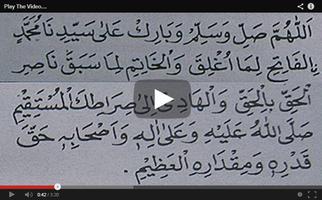 Play The Video....
اَللّٰهُمَّ صَلِّ وَسَلِّمْ وَبَارِكْ عَلىٰ سَيِّدِنَا مُحَمَّدٍ
اِلْفَاتِحِ لِمَا اُغْلِقَ وَالْخَاتِمِ لِمَا سَبَقَ نَاصِرِ
الْحَقِّ بِالْحَقِّ وَالْهَادِىْ اِلىٰ صِرَاطِكَ الْمُسْتَقِيْمِ
صَلَّى اللهُ عَلَيْهِ وَعَلىٰ اٰلِهٖ وَاَصْحَابِهٖ حَقَّ
قَدْرِهٖ وَمِقْدَارِهِ الْعَظِيْمِ.
0:42 / 3:20